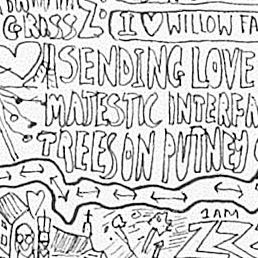 GRASS
I ♥ WILLOW FA
SENDING LOVE
MAJESTIC INTERFA
TREES ON PUTNEY
1AM
ZZ